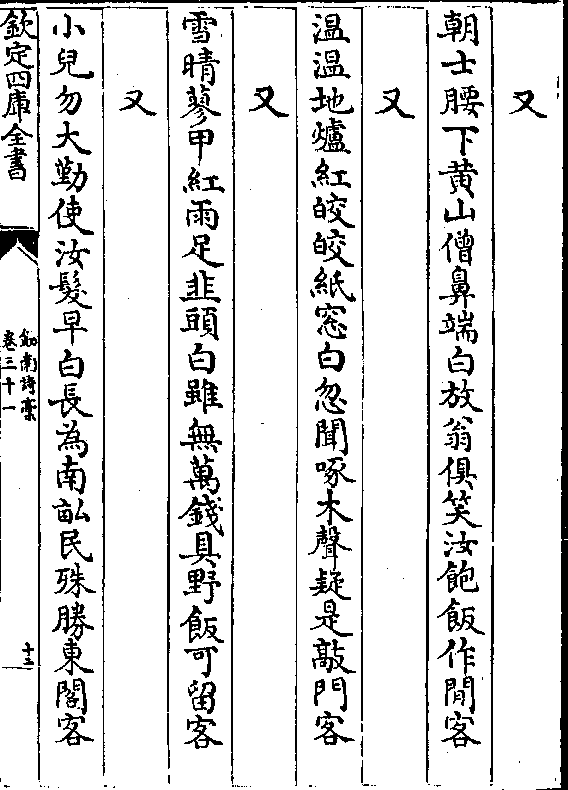 又
朝士腰下黄山僧鼻端白放翁俱笑汝飽飯作閒客
又
温温地爐紅皎皎紙窓白忽聞啄木聲疑是敲門客
又
雪晴蓼甲紅雨足韭頭白雖無萬錢具野飯可留客
又
小兒勿大勤使汝髮早白長為南畝民殊勝東閣客
欽定四庫全書
劍南詩稾
卷三十一
十三